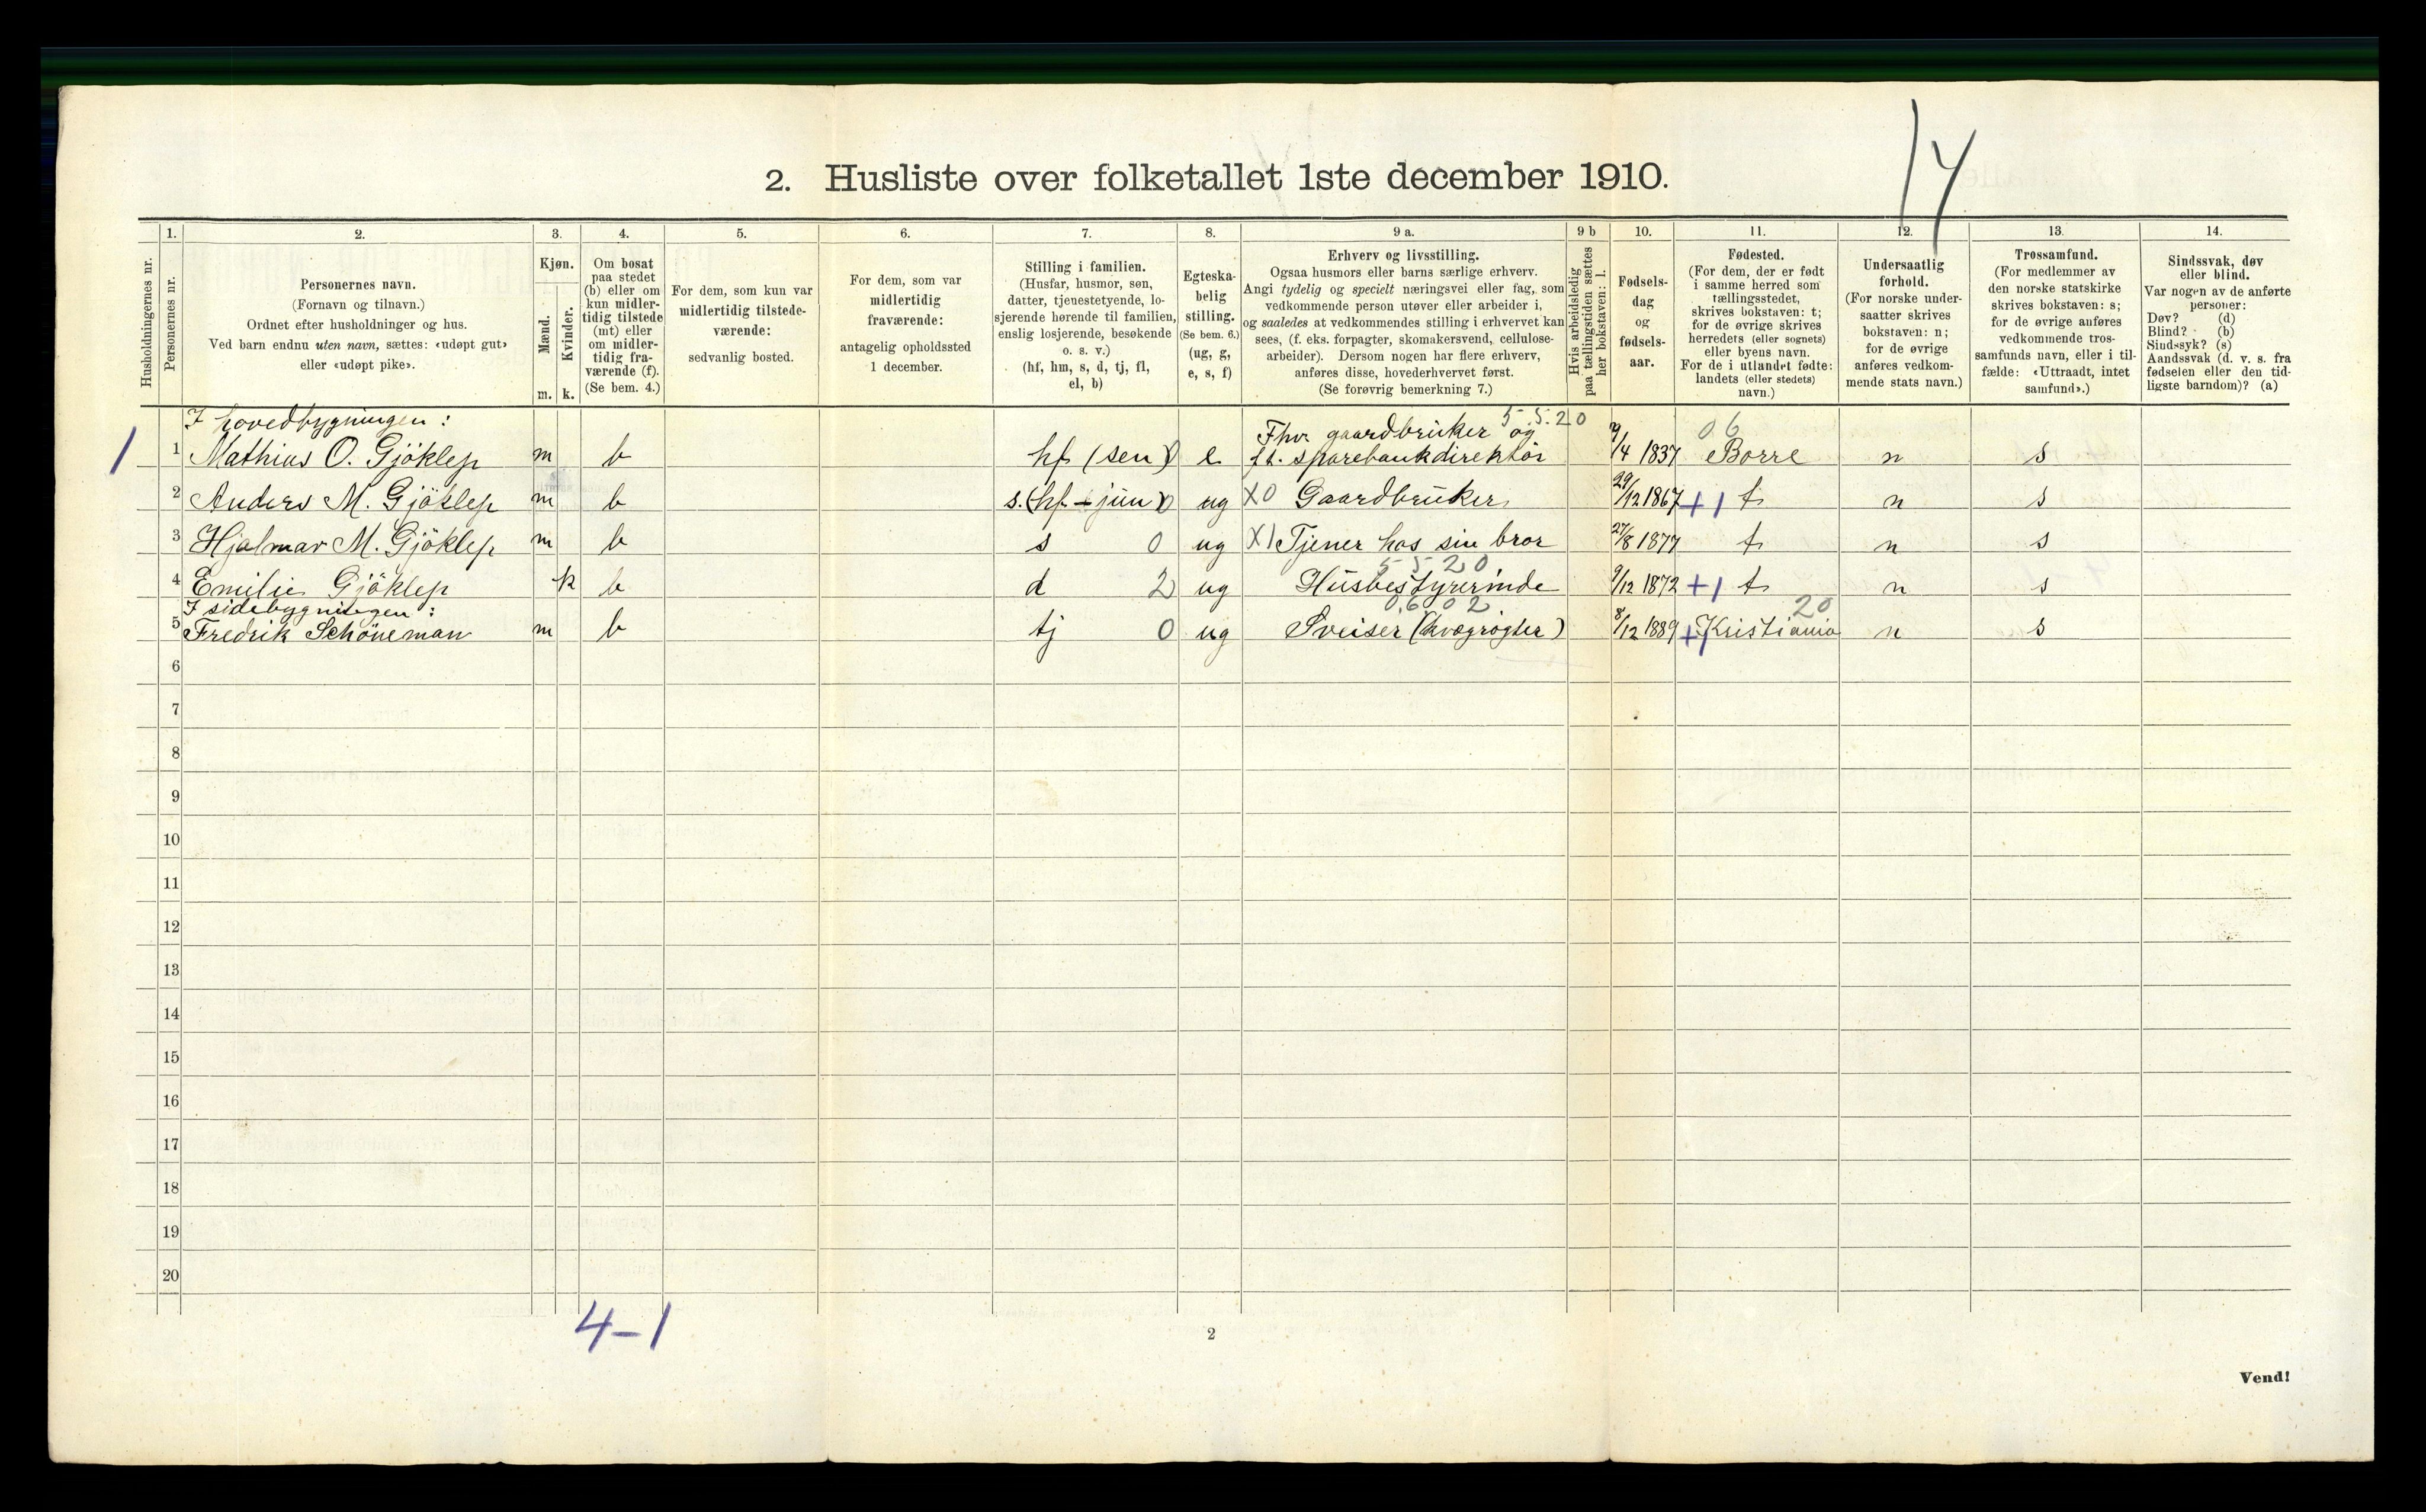 14
2. Husliste over folketallet 1ste december 1910.
Husholdningernes nr.
1.
Personernes nr.
2.
Personernes navn.
(Fornavn og tilnavn.)
Ordnet efter husholdninger og hus.
Ved barn endnu uten navn, sættes: «udøpt gut»
eller «udøpt pike».
3.
Kjøn.
Mænd.
Kvinder.
m. k.
4.
Om bosat
paa stedet
(b) eller om
kun midler-
tidig tilstede
(mt) eller
om midler-
tidig fra-
værende (f).
(Se bem. 4.)
5.
For dem, som kun var
midlertidig tilstede-
værende:
sedvanlig bosted.
6.
For dem, som var
midlertidig
fraværende:
antagelig opholdssted
1 december.
7.
Stilling i familien.
(Husfar, husmor, søn,
datter, tjenestetyende, lo-
sjerende hørende til familien,
enslig losjerende, besøkende
o. s. v.)
(hf, hm, s, d, tj, fl,
el, b)
8.
Egteska-
belig
stilling.
(Se bem. 6.)
(ug, g,
e, s, f)
9 a.
Erhverv og livsstilling.
Ogsaa husmors eller barns særlige erhverv.
Angi tydelig og specielt næringsvei eller fag, som
vedkommende person utøver eller arbeider i,
og saaledes at vedkommendes stilling i erhvervet kan
sees, (f. eks. forpagter, skomakersvend, cellulose-
arbeider). Dersom nogen har flere erhverv,
anføres disse, hovederhvervet først.
(Se forøvrig bemerkning 7.)
9 b
Hvis arbeidsledig
paa tællingstiden sættes
her bokstaven: l.
10.
Fødsels-
dag
og
fødsels-
aar.
11.
Fødested.
(For dem, der er født
i samme herred som
tællingsstedet,
skrives bokstaven: t;
for de øvrige skrives
herredets (eller sognets)
eller byens navn.
For de i utlandet fødte:
landets (eller stedets)
navn.)
12.
Undersaatlig
forhold.
(For norske under-
saatter skrives
bokstaven: n;
for de øvrige
anføres vedkom-
mende stats navn.)
13.
Trossamfund.
(For medlemmer av
den norske statskirke
skrives bokstaven: s;
for de øvrige anføres
vedkommende tros-
samfunds navn, eller i til-
fælde: «Uttraadt, intet
samfund».)
14.
Sindssvak, døv
eller blind.
Var nogen av de anførte
personer:
Døv? (d)
Blind? (b)
Sindssyk? (s)
Aandssvak (d. v. s. fra
fødselen eller den tid-
ligste barndom)? (a)
I hovedbygningen: 5.5.20
Fhv. gaardbruker og 06
1 1 Mathius O. Gjöklep m b hf (sen) 0 e ft. sparebankdirektör 9/4 1837 Borre n s
2 Anders M. Gjöklep m b s. (hf - jun) 0 ug X0 Gaardbruker 29/12 1867 +1 t n s
3 Hjalmar M. Gjöklep m b s 0 ug X1 Tjener hos sin bror 27/8 1877 t n s
5520
4 Emilie Gjöklep k b d 2 ug Husbestyrerinde 9/12 1872 +1 t n s
I sidebygningen: 0602 20
5 Fredrik Schöneman m b tj 0 ug Sveiser (kvægrøgter) 8/12 1889 +1 Kristiania n s
6
7
8
9
10
11
12
13
14
15
16
17
18
19
20
4-1
2
Vend!